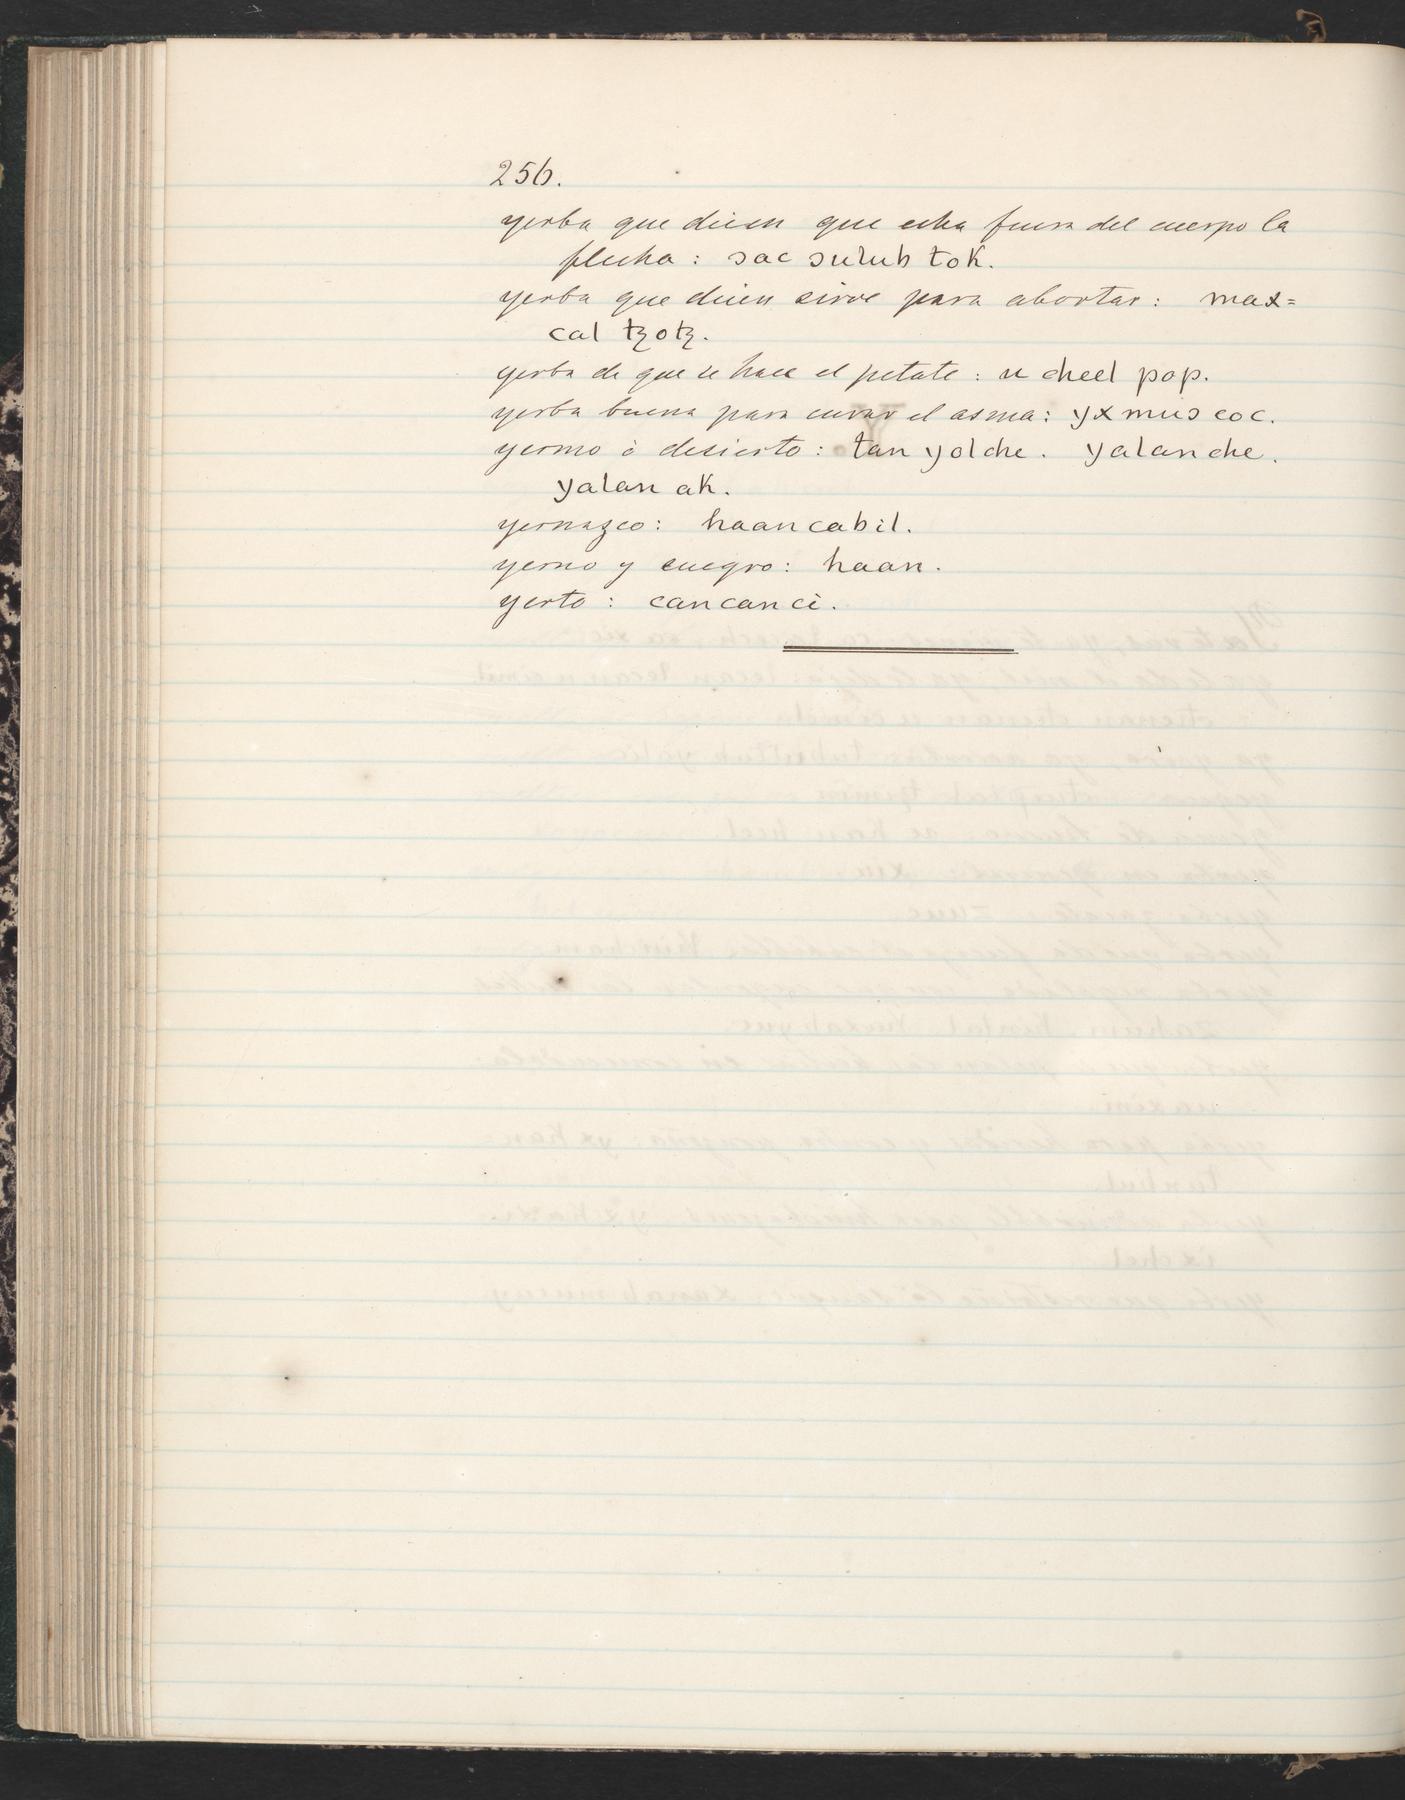 256.
yerba que dicen que echa fuera del cuerpo la
flecha: sac sulub toK.
yerba que dicen sirve para abortar: max=
cal tꜩotꜩ.
yerba de que se hace el petate: u cheel pop.
yerba buena para curar el asma: yx mus coc.
yermo ò desierto: tan yolche. yalanche.
yalan aK.
yernazgo: haancabil.
yerno y suegro: haan.
yerto: cancanci.